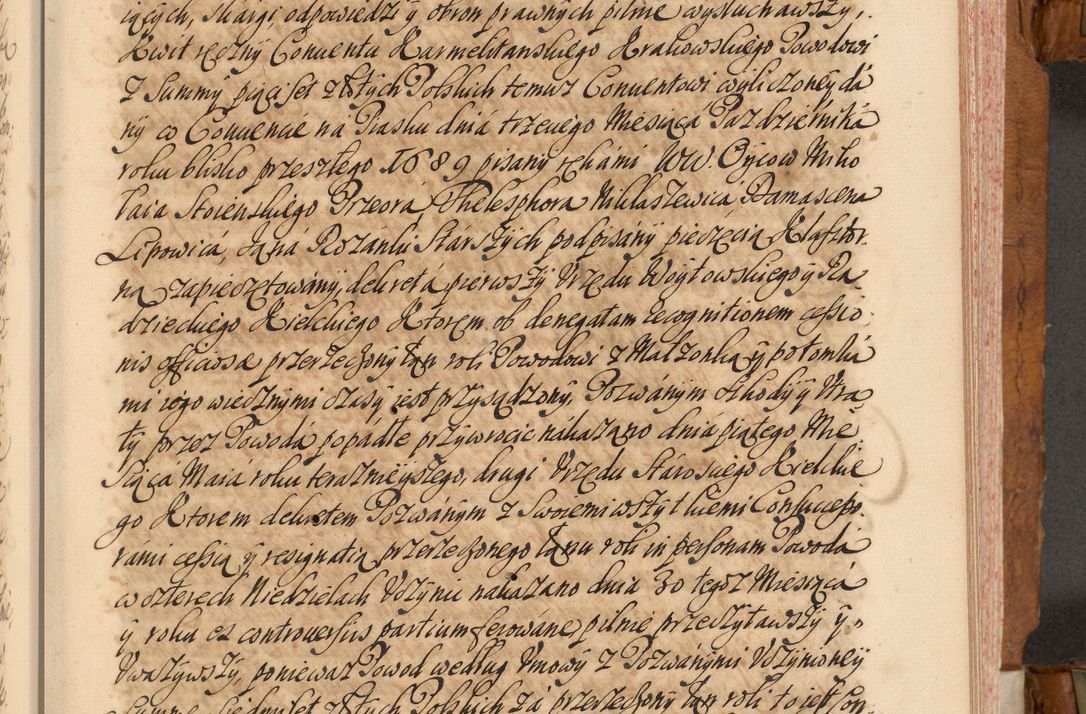 iących, skargi, odpowiedzi ÿ obron prawnÿch pilnie wysłuchawszÿ,
Kwit ręcznÿ Conuentu Karmelitanskiego Krakowskiego Powodowi
z Summÿ pięciset złotÿch Polskich temuż Conuentowi wÿliczoneÿ dá
nÿ w Conuencie ná Piasku dniá trzeciego Miesiącá Pazdzierniká
roku blisko przeszłego 1689 pisanÿ rękámi WW. Oÿcow Miko
łaia Stoienskiego Przeorá, Thelesphora Miklaszewicá Damascena
Lipowicá, Janá Rozánki Stárszÿch podpisanÿ pieczęcią Klasztor
ną zapieczętowánÿ, dekretá pierwszÿ Vrzędu Woÿtowskiego ÿ Ra
dzieckiego Kielckiego Ktorem ob denegatam recognitionem cessio
nis officiosæ przerzeczonÿ łan roli Powodowi z Małzonką ÿ potomká
mi iego wiecznÿmi czasÿ iest przÿsądzonÿ, Pozwánÿm szkodÿ ÿ Vtra
tÿ przez Powodá popádłe przÿwrocic nákazano dniá piątego Mie
siącá Maiá roku teraznieÿszego, drugi Vrzędu Stárosciego Kielckie
go Ktorem dekretem Pozwánÿm z Swoiemi wszÿstkiemi Consuccesso
rámi cessią ÿ resignatią przerzeczonego łanu roli in personam Powodá
w czterech Niedzielach Vczÿnic nakazano dnia 30 tegoz Miesiącá
ÿ roku ex controversiis partium ferowáne, pilnie przeczÿtawszÿ ÿ
Vwazÿwszÿ, poniewaz Powod według Vmowÿ z Pozwánÿmi Vczÿnioneÿ
Summę siedmset złotÿch Polskich zá przerzeczonÿ łan roli to iest Con